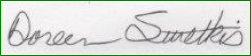 Doreen Swetkis